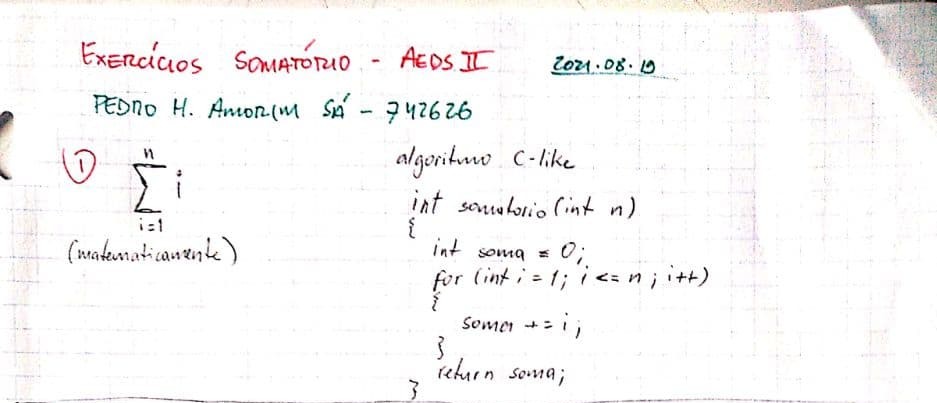 EXERCÍCIOS SOMATÓRIO - AEDS II 2021.08.19
PEDRO H. AMORIM SÁ - 742626
① n
∑ i
i=1
(matematicamente)
algoritmo C-like
int somatorio (int n)
{
int soma = 0;
for (int i = 1; i <= n; i++)
{
soma += i;
}
return soma;
}